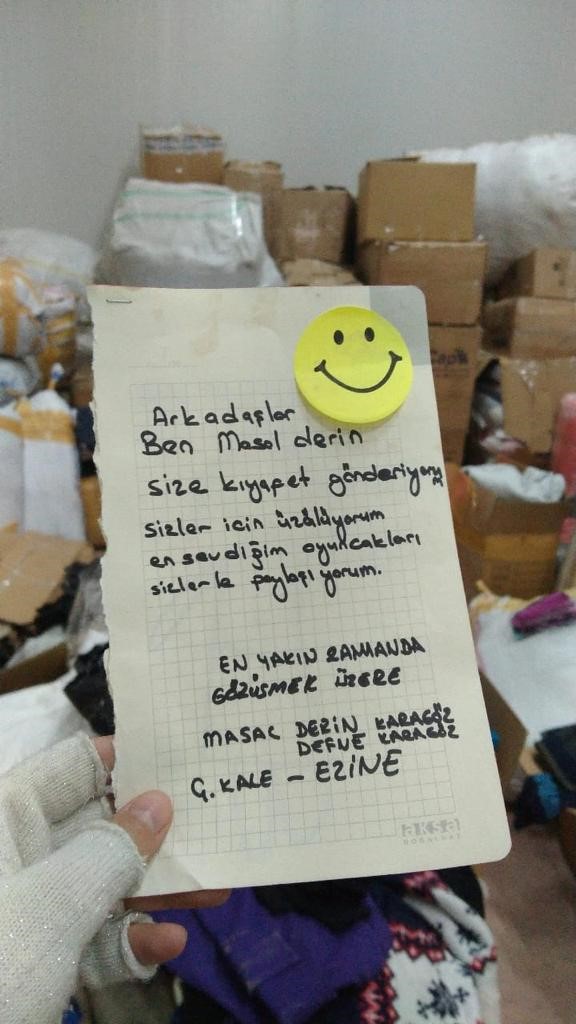 Arkadaşlar
Ben Masal derin
size kıyafet gönderiyorum
sizler için üzülüyorum
en sevdiğim oyuncakları
sizlerle paylaşıyorum.
EN YAKIN ZAMANDA
GÖZÜŞMEK ÜZERE
MASAL DERİN KARAGÖZ
DEFNE KARAGÖZ
Ç.KALE – EZİNE
aksa
DOĞALGAZ